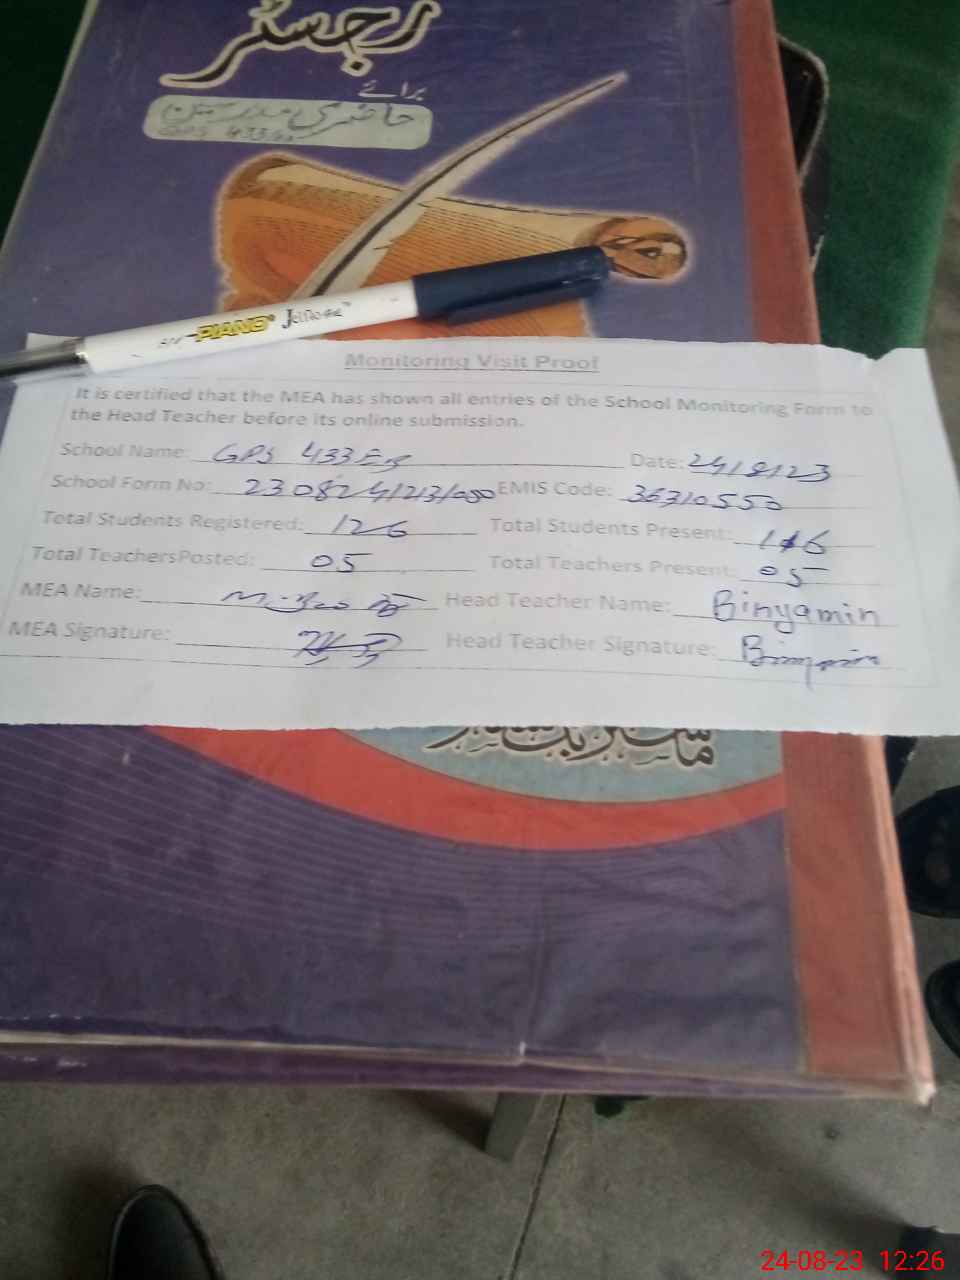 رجسٹر
برائے
حاضری مدرسین
GPS 433 EB
PIANO® Jellose™
Monitoring Visit Proof
It is certified that the MEA has shown all entries of the School Monitoring Form to
the Head Teacher before its online submission.
School Name: GPS 433 EB Date: 24/8/23
School Form No: EMIS Code: 36310550
Total Students Registered: 126 Total Students Present: 116
Total TeachersPosted: 05 Total Teachers Present: 05
MEA Name: Head Teacher Name: Binyamin
MEA Signature: Head Teacher Signature:
24-08-23 12:26